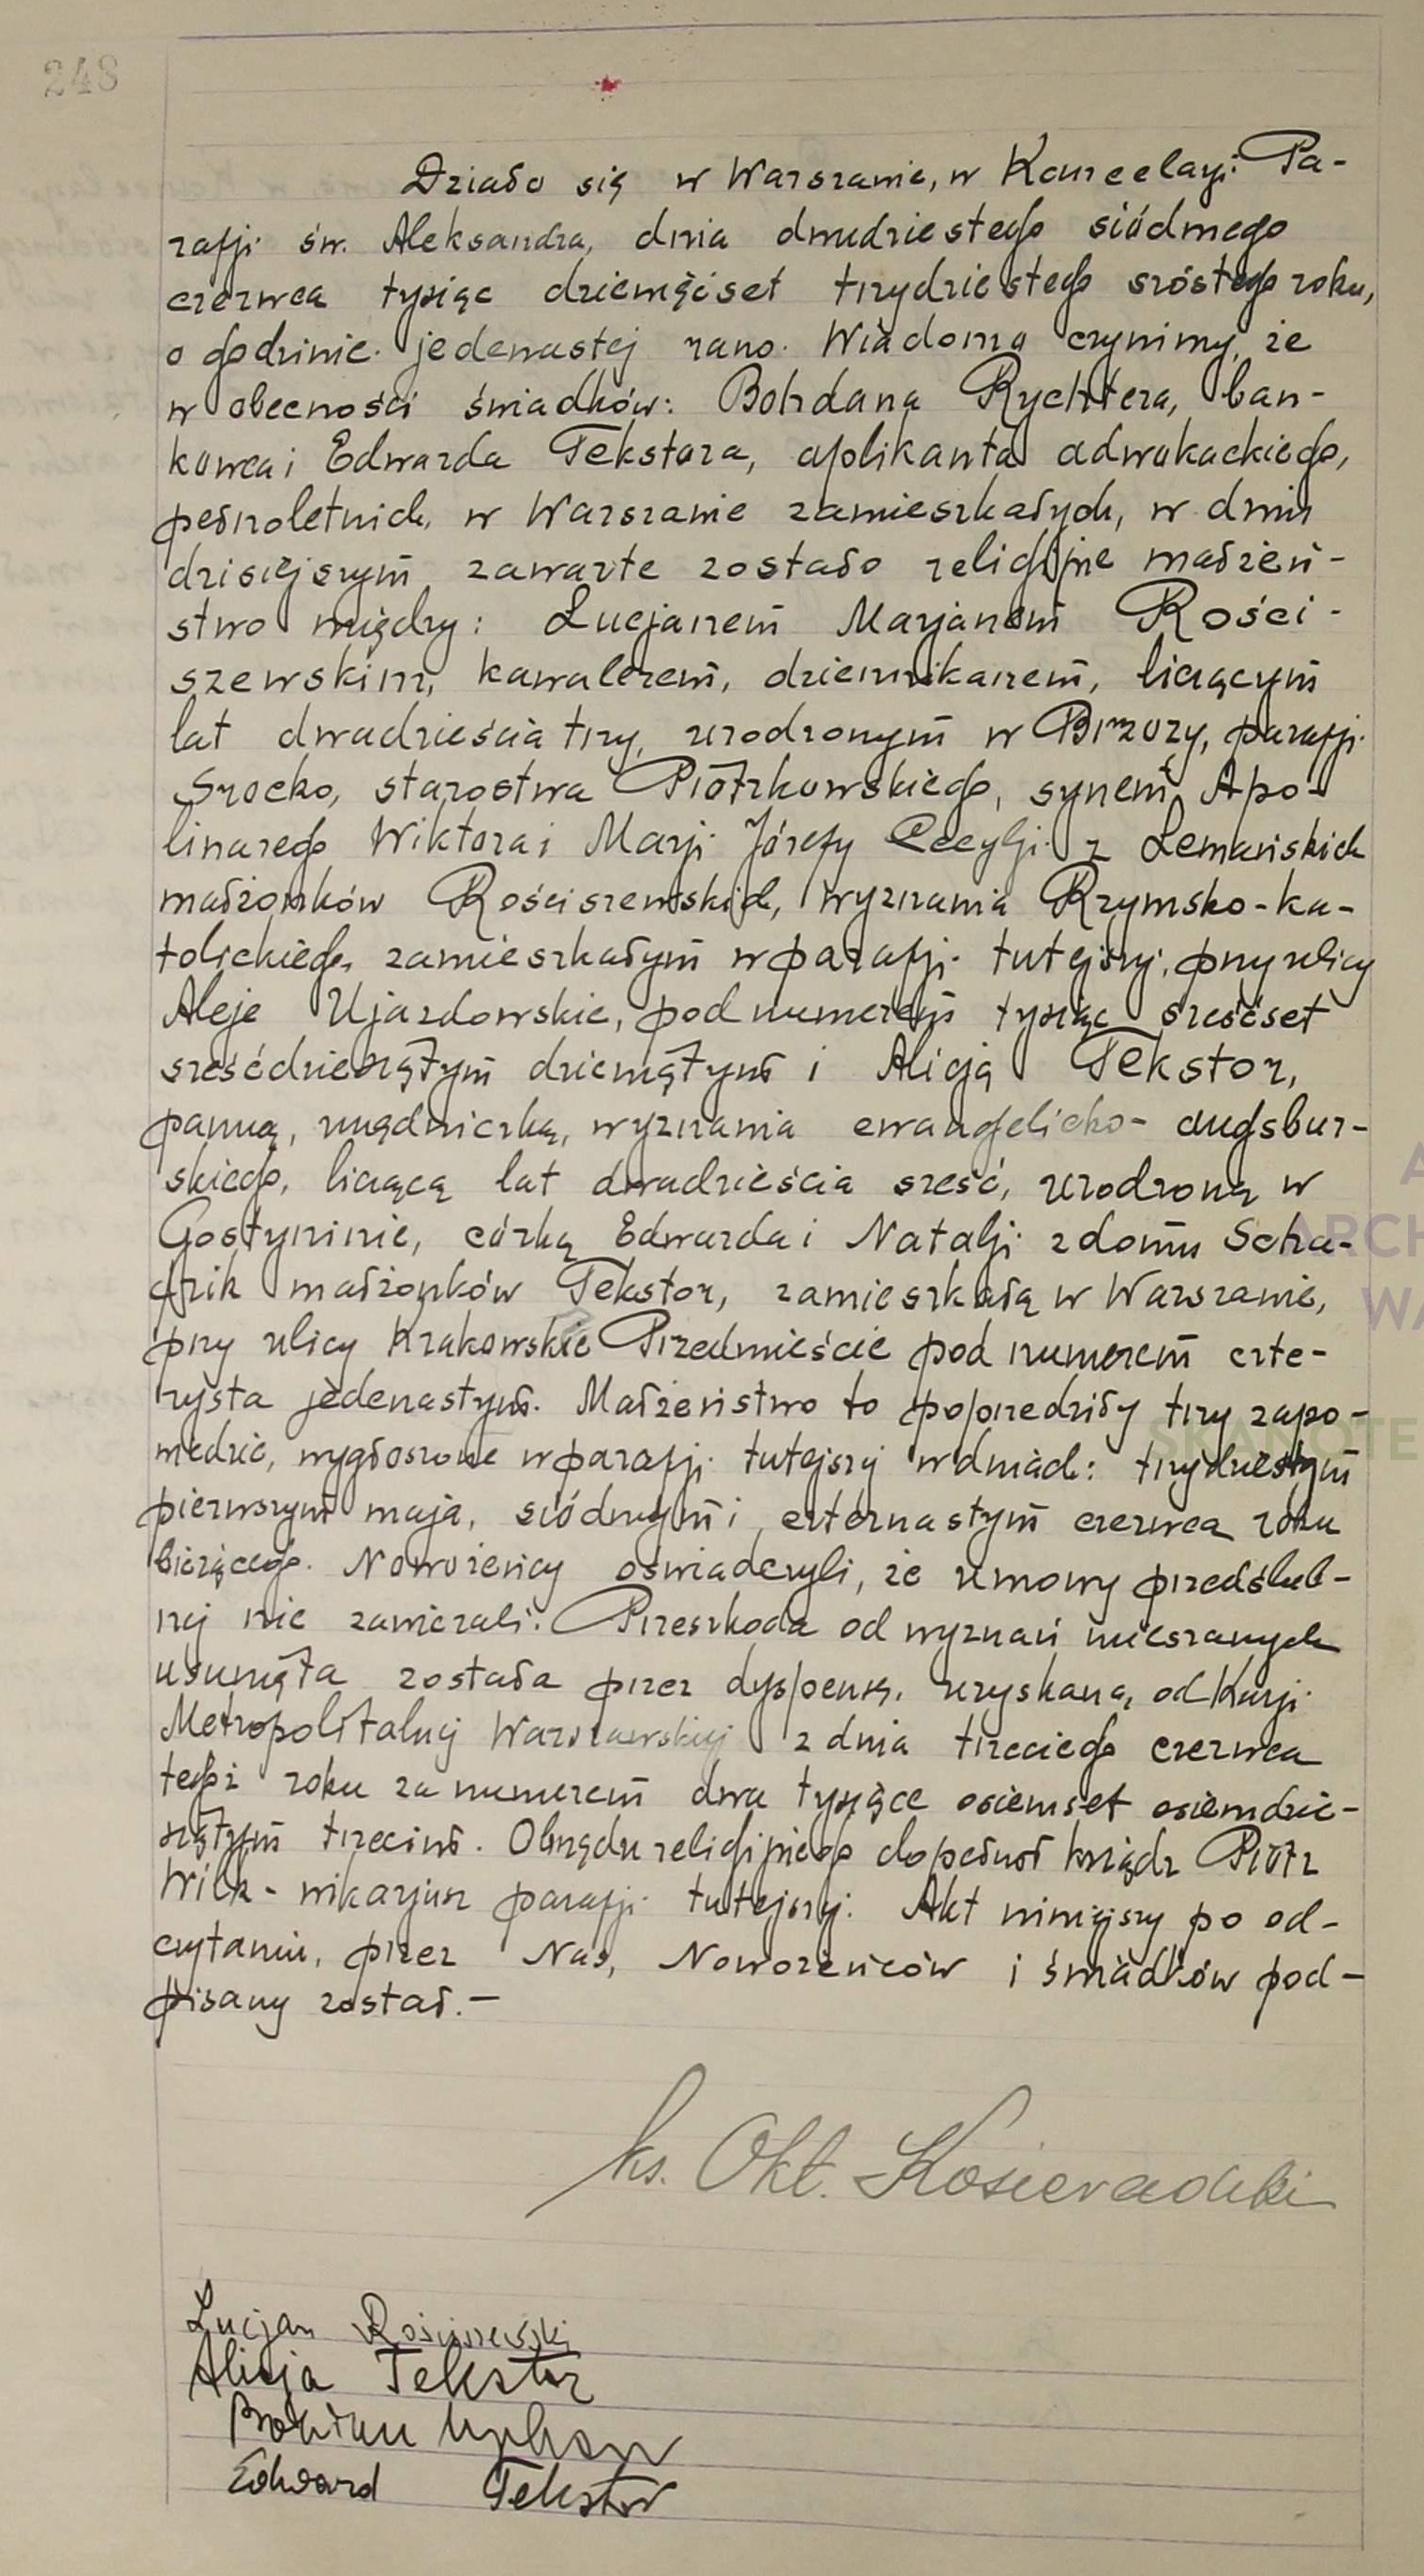 248
Działo się w Warszawie, w Kancelarji Pa-
rafji św. Aleksandra, dnia dwudziestego siódmego
czerwca tysiąc dziewięćset trzydziestego szóstego roku,
o godzinie jedenastej rano. Wiadomo czynimy, że
w obecności świadków: Bohdana Rychtera, ban-
kowca i Edwarda Tekstora, aplikanta adwokackiego,
pełnoletnich, w Warszawie zamieszkałych, w dniu
dzisiejszym zawarte zostało religijne małżeń-
stwo między: Lucjanem Marjanem Rości-
szewskim, kawalerem, dziennikarzem, liczącym
lat dwadzieścia trzy, urodzonym w Brzozy, parafji
Srocko, starostwa Piotrkowskiego, synem Apo-
linarego Wiktora i Marji Józefy Cecylji z Lemańskich
małżonków Rościszewskich, wyznania Rzymsko-ka-
tolickiego, zamieszkałym w parafji tutejszej, przy ulicy
Aleje Ujazdowskie, pod numerem tysiąc sześćset
sześćdziesiątym dziewiątym i Alicją Tekstor,
panną, urzędniczką, wyznania ewangelicko-augsbur-
skiego, liczącą lat dwadzieścia sześć, urodzoną w
Gostyninie, córką Edwarda i Natalji z domu Scha-
małżonków Tekstor, zamieszkałą w Warszawie,
przy ulicy Krakowskie Przedmieście pod numerem czte-
rysta jedenastym. Małżeństwo to poprzedziły trzy zapo-
wiedzie, wygłoszone w parafji tutejszej w dniach: trzydziestym
pierwszym maja, siódmym i czternastym czerwca roku
bieżącego. Nowożeńcy oświadczyli, że umowy przedślub-
nej nie zawierali. Przeszkoda od wyznań mieszanych
usunięta została przez dyspensę, uzyskaną od Kurji
Metropolitalnej Warszawskiej z dnia trzeciego czerwca
tegoż roku za numerem dwa tysiące osiemset osiemdzie-
siątym trzecim. Obrzędu religijnego dopełnił ksiądz Piotr
Wilk - wikarjusz parafji tutejszej. Akt niniejszy po od-
czytaniu, przez Nas, Nowożeńców i świadków pod-
pisany został.-
ks. Okt.
Lucjan Rościszewski
Alicja Tekstor
Edward Tekstor